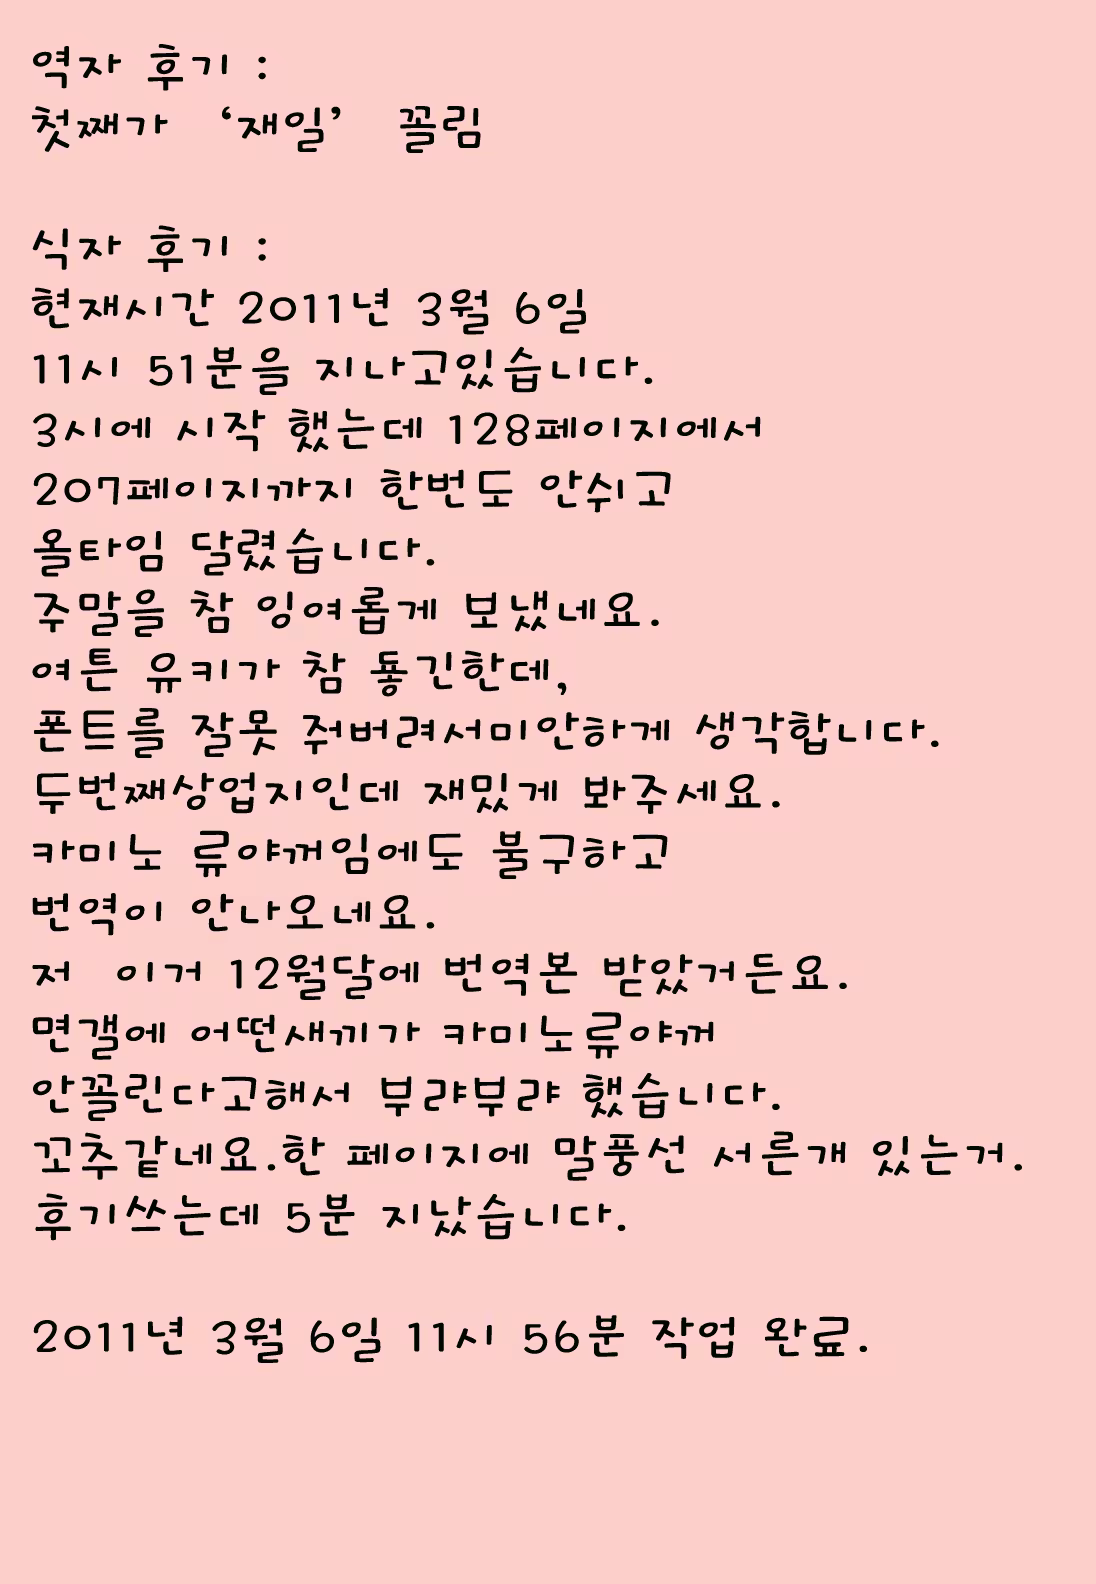 역자 후기 :
첫째가 ‘재일’ 꼴림
식자 후기 :
현재시간 2011년 3월 6일
11시 51분을 지나고있습니다.
3시에 시작 했는데 128페이지에서
207페이지까지 한번도 안쉬고
올타임 달렸습니다.
주말을 참 잉여롭게 보냈네요.
여튼 유키가 참 돟긴한데,
폰트를 잘못 줘버려서미안하게 생각합니다.
두번째상업지인데 재밌게 봐주세요.
카미노 류야꺼임에도 불구하고
번역이 안나오네요.
저 이거 12월달에 번역본 받았거든요.
면갤에 어떤새끼가 카미노류야꺼
안꼴린다고해서 부랴부랴 했습니다.
꼬추같네요.한 페이지에 말풍선 서른개 있는거.
후기쓰는데 5분 지났습니다.
2011년 3월 6일 11시 56분 작업 완료.